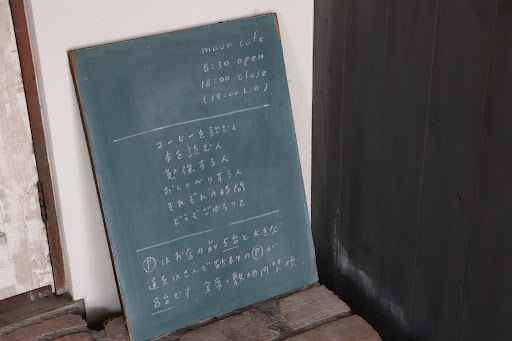 mano cafe
8:30 open
18:00 close
(17:00 L.O)
コーヒーを飲む人
本を読む人
勉強する人
おしゃべりする人
それぞれの時間
どうぞごゆるりと
Ⓟはお店の前5台と大きな
道をはさんで砂利のⓅが
8台です。全席・敷地内禁煙。